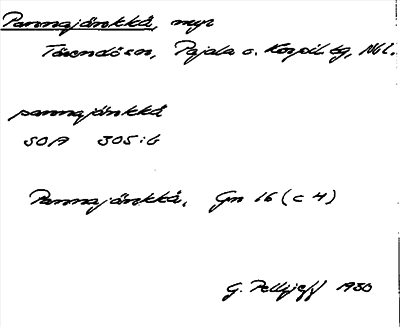 Pannajänkkä, myr
Tärendö sn, Pajala o. Korpil. tg, Nbl.
pannajänkkä
SOA 305:6
Pannajänkkä, Gn 16 (c 4)
G. Pellijeff 1980